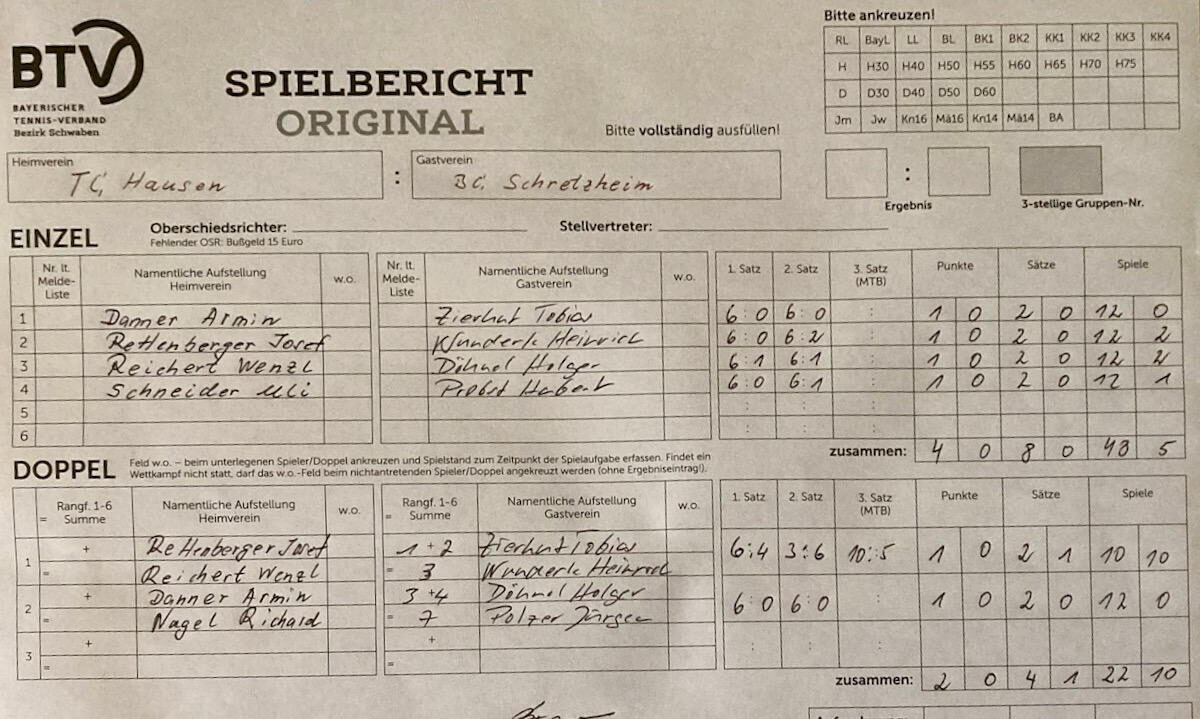 BTV
BAYERISCHER
TENNIS-VERBAND
Bezirk Schwaben
SPIELBERICHT
ORIGINAL
Bitte vollständig ausfüllen!
Bitte ankreuzen!
RL BayL LL BL BK1 BK2 KK1 KK2 KK3 KK4
H H30 H40 H50 H55 H60 H65 H70 H75
D D30 D40 D50 D60
Jm Jw Kn16 Mä16 Kn14 Mä14 BA
Heimverein
TC Hausen
:
Gastverein
BC Schretzheim
:
Ergebnis
3-stellige Gruppen-Nr.
EINZEL
Oberschiedsrichter:
Fehlender OSR: Bußgeld 15 Euro
Stellvertreter:
Nr. lt. Melde-Liste Namentliche Aufstellung Heimverein w.o. Nr. lt. Melde-Liste Namentliche Aufstellung Gastverein w.o. 1. Satz 2. Satz 3. Satz (MTB) Punkte Sätze Spiele
1 Danner Armin Zierhut Tobias 6:0 6:0 : 1 0 2 0 12 0
2 Rettenberger Josef Wunderle Heinrich 6:0 6:2 : 1 0 2 0 12 2
3 Reichert Wenzl Döhnel Holger 6:1 6:1 : 1 0 2 0 12 2
4 Schneider Uli Probst Hubert 6:0 6:1 : 1 0 2 0 12 1
5 : : :
6 : : :
zusammen: 4 0 8 0 48 5
DOPPEL
Feld w.o. – beim unterlegenen Spieler/Doppel ankreuzen und Spielstand zum Zeitpunkt der Spielaufgabe erfassen. Findet ein
Wettkampf nicht statt, darf das w.o.-Feld beim nichtantretenden Spieler/Doppel angekreuzt werden (ohne Ergebniseintrag!).
= Rangf. 1-6 Summe Namentliche Aufstellung Heimverein w.o. = Rangf. 1-6 Summe Namentliche Aufstellung Gastverein w.o. 1. Satz 2. Satz 3. Satz (MTB) Punkte Sätze Spiele
1 + Rettenberger Josef 1 + 2 Zierhut Tobias 6:4 3:6 10:5 1 0 2 1 10 10
= Reichert Wenzl = 3 Wunderle Heinrich
2 + Danner Armin 3 + 4 Döhnel Holger 6:0 6:0 : 1 0 2 0 12 0
= Nagel Richard = 7 Polzer Jürgen
3 + + : : :
= =
zusammen: 2 0 4 1 22 10